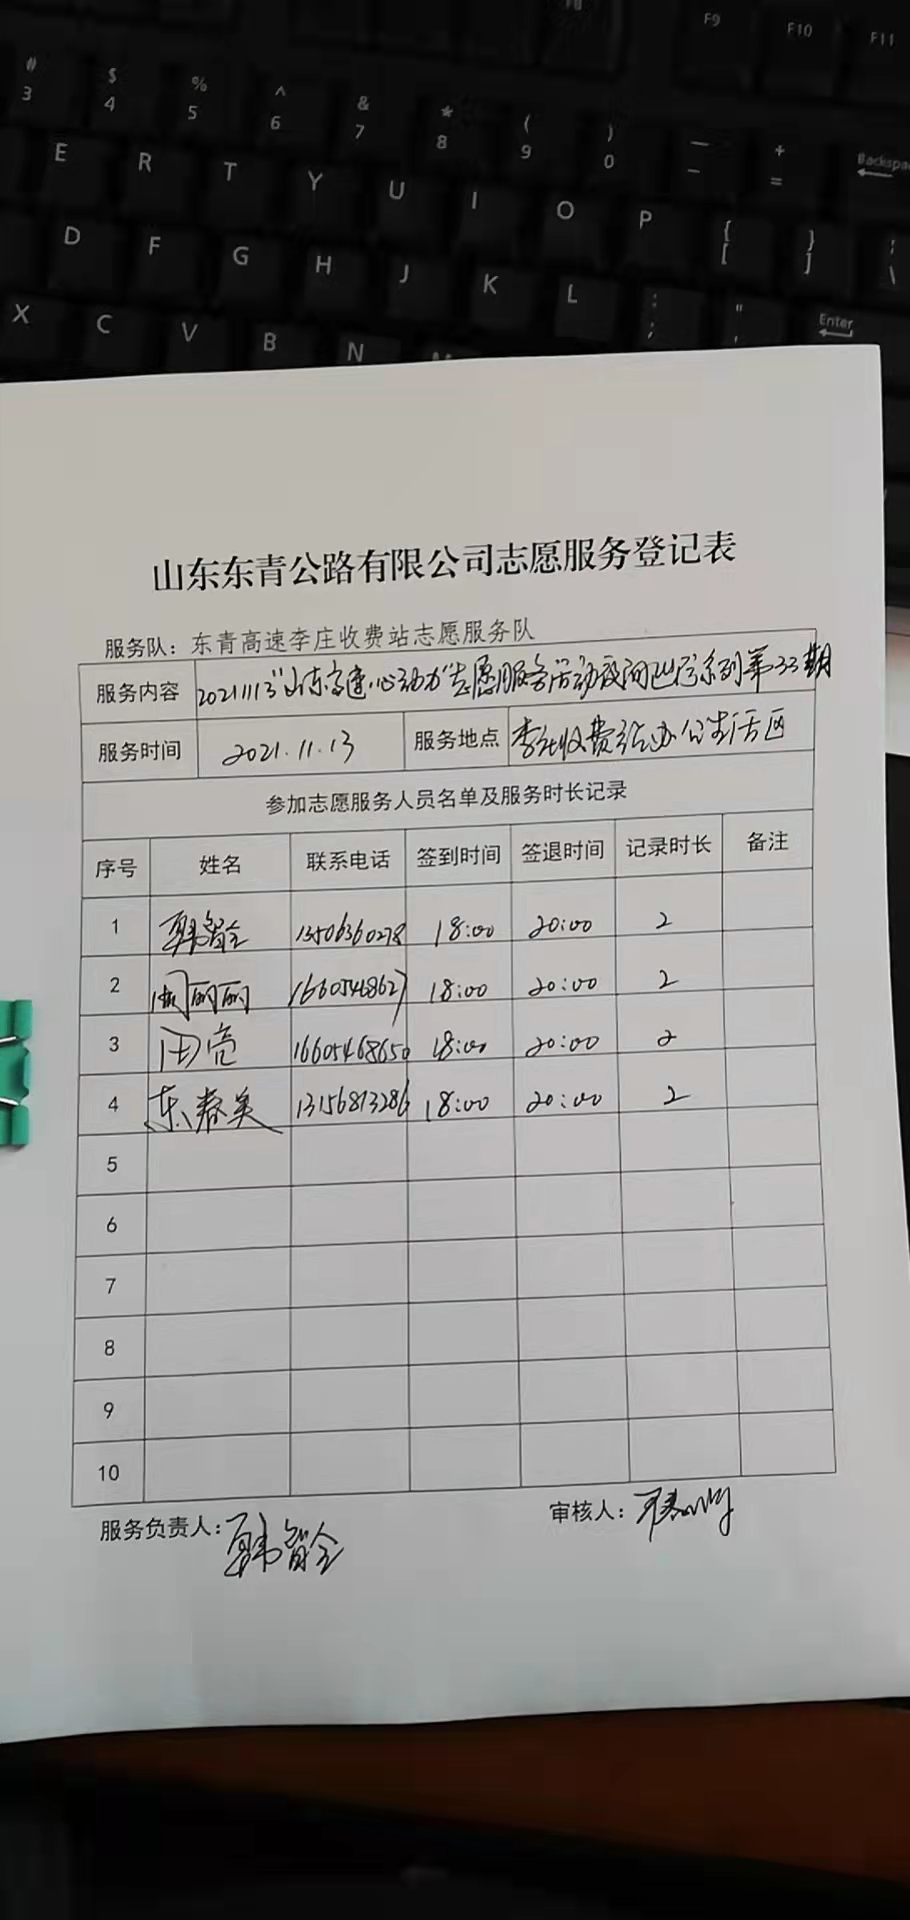 F8 F9 F10 F11
# $ % ^ & * ( ) — +
3 4 5 6 7 8 9 0 - = Backspa
E R T Y U I O P { [ } ]
D F G H J K L : ; " ' Enter
X C V B N M
山东东青公路有限公司志愿服务登记表
服务队：东青高速李庄收费站志愿服务队
服务内容 20211113"山东高速·心动力"志愿服务活动夜间巡逻系列第33期
服务时间 2021.11.13 服务地点 李庄收费站办公生活区
参加志愿服务人员名单及服务时长记录
序号 姓名 联系电话 签到时间 签退时间 记录时长 备注
1 韩智全 13506360278 18:00 20:00 2
2 周丽丽 16605468627 18:00 20:00 2
3 田亮 16605468650 18:00 20:00 2
4 东春美 13156813286 18:00 20:00 2
5
6
7
8
9
10
服务负责人：韩智全 审核人：